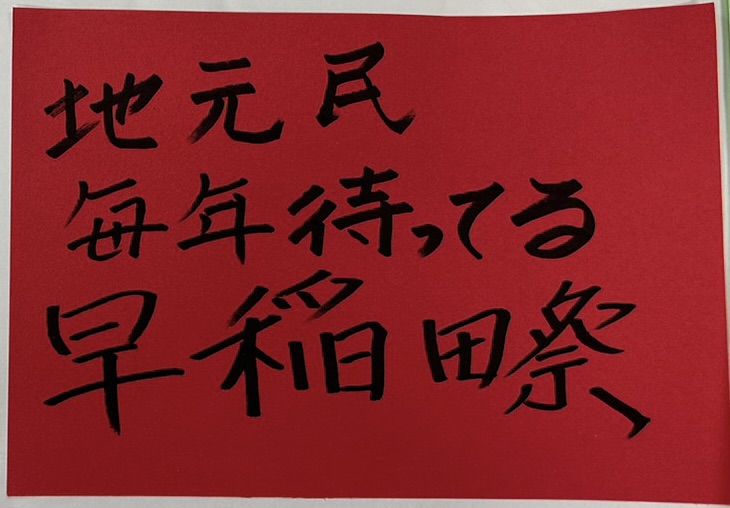 地元民
毎年待ってる
早稲田祭